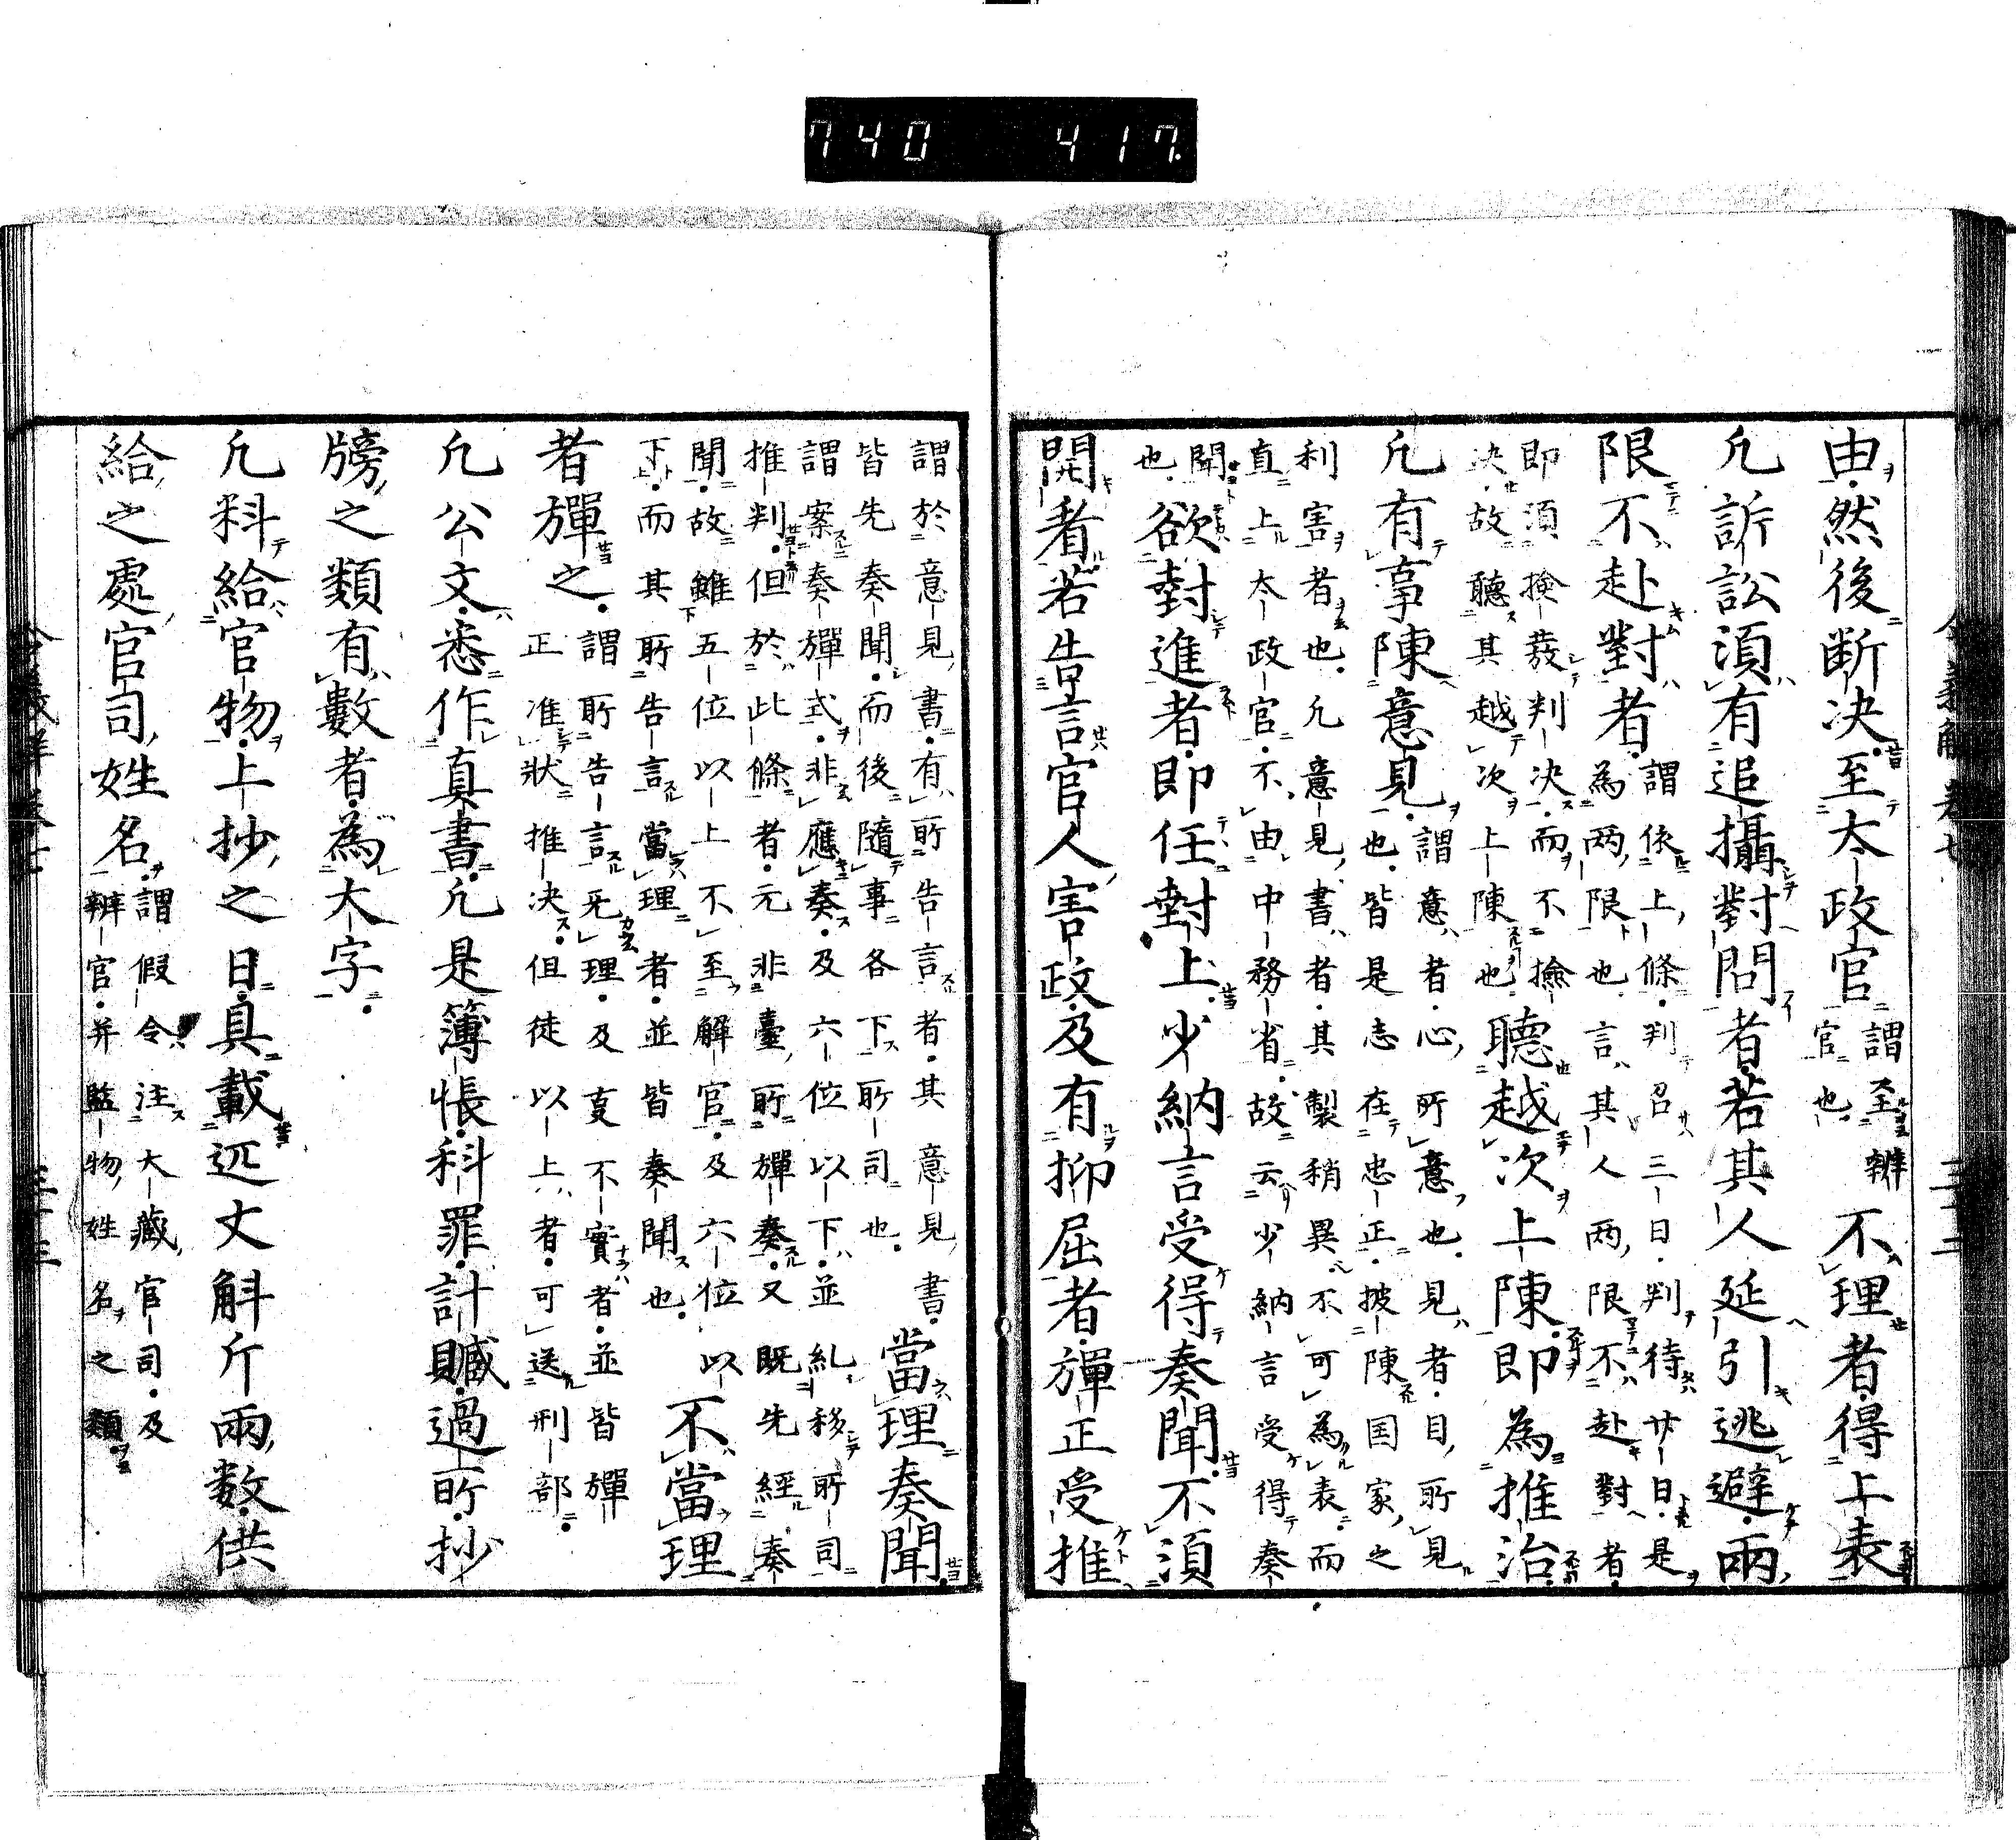 740 417
由然後断决至太政官謂至辨
官也不理者得上表
凢訴訟須有追攝對問者若其人延引逃避兩
限不赴對者謂依上條判召三日判待廿日是
為两限也言其人两限不赴對者
即須撿裁判决而不撿
决故聽其越次上陳也聽越次上陳即為推治
凢有事陳意見謂意者心所意也見者目所見
也皆是志在忠正披陳国家之
利害者也凢意見書者其製稍異不可為表而
直上太政官不由中務省故云少納言受得奏
聞
也欲對進者即任對上少納言受得奏聞不須
開者若告言官人害政及有抑屈者彈正受推
謂於意見書有所告言者其意見書
皆先奏聞而後隨事各下所司也當理奏聞
謂案奏彈式非應奏及六位以下並糺移所司
推判但於此條者元非臺所彈奏又既先經奏
聞故雖五位以上不至解官及六位以
下而其所告言當理者並皆奏聞也不當理
者彈之謂所告言旡理及叓不實者並皆彈
正准状推决但徒以上者可送刑部
凢公文悉作真書凢是簿帳科罪計贓過所抄
牓之類有數者為大字
凢料給官物上抄之日具載匹丈斛斤兩数供
給之處官司姓名謂假令注大藏官司及
辨官并監物姓名之類